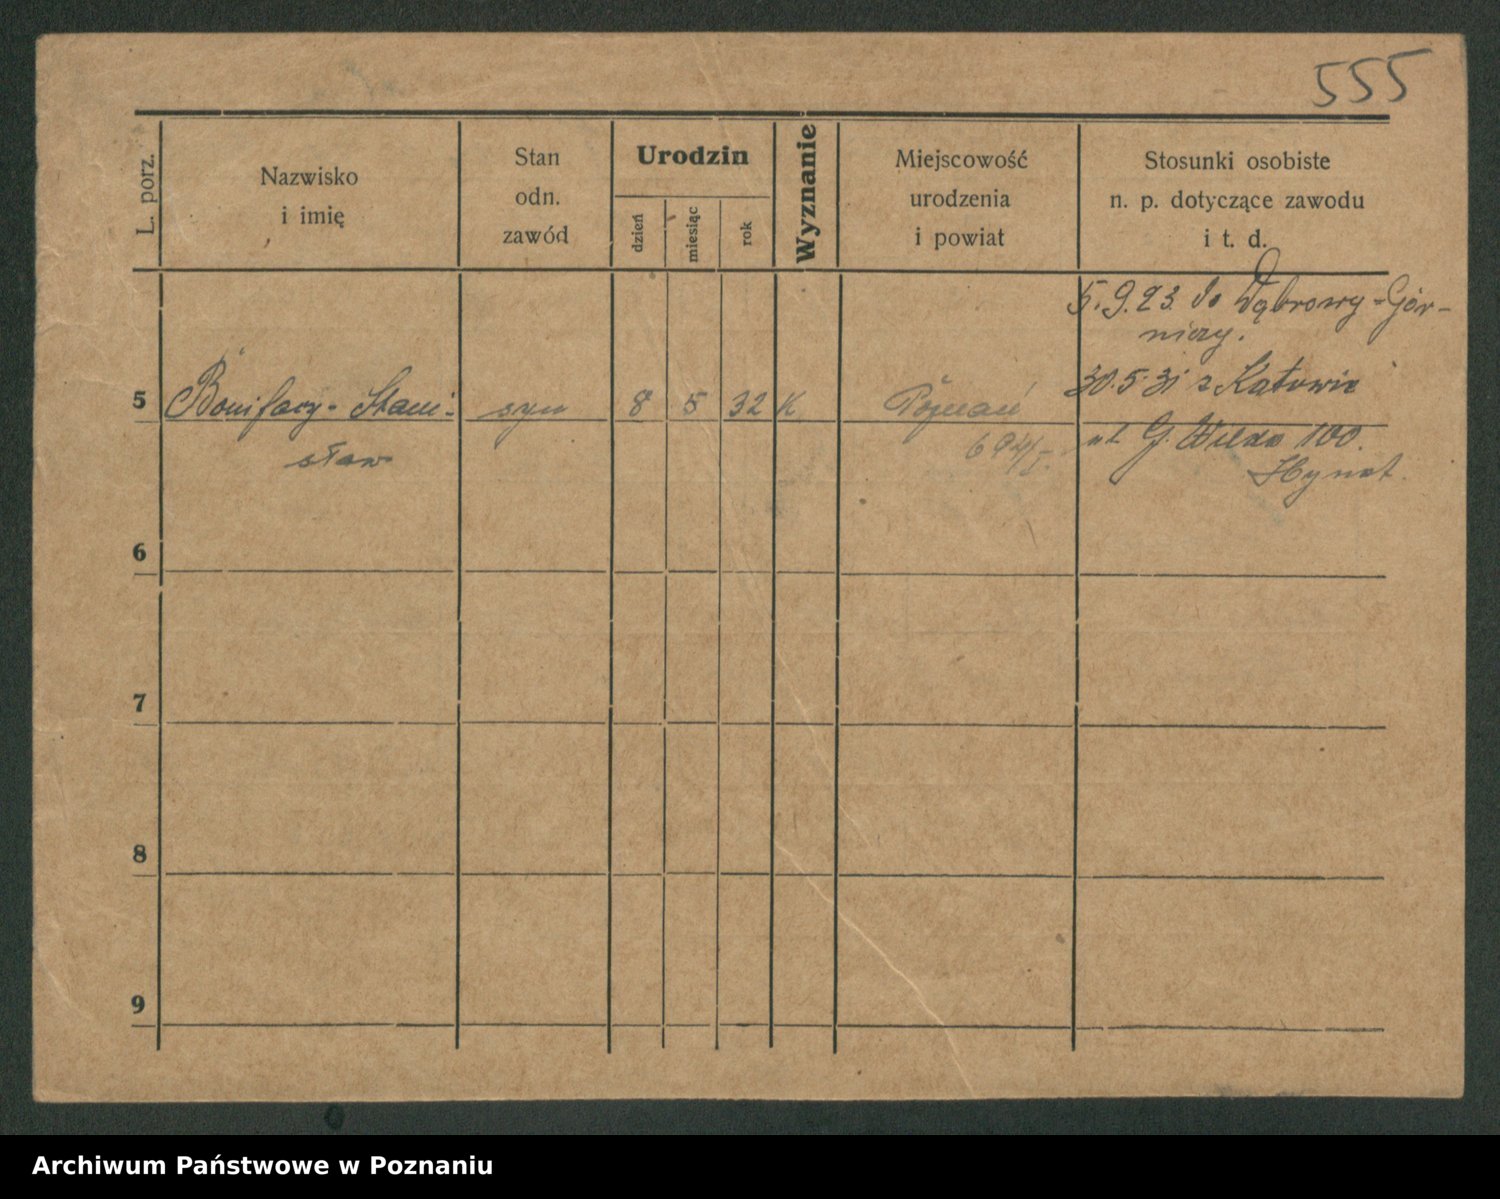 555
L. porz.
Nazwisko
i imię
Stan
odn.
zawód
Urodzin
dzień
miesiąc
rok
Wyznanie
Miejscowość
urodzenia
i powiat
Stosunki osobiste
n. p. dotyczące zawodu
i t. d.
5.9.23 do Dąbrowy-Gór-
niczy.
30.5.31 z Katowic
5 Bonifacy-Stani- syn 8 5 32 K Poznań
sław
ul G. Wilda 100.
6
7
8
9
Archiwum Państwowe w Poznaniu